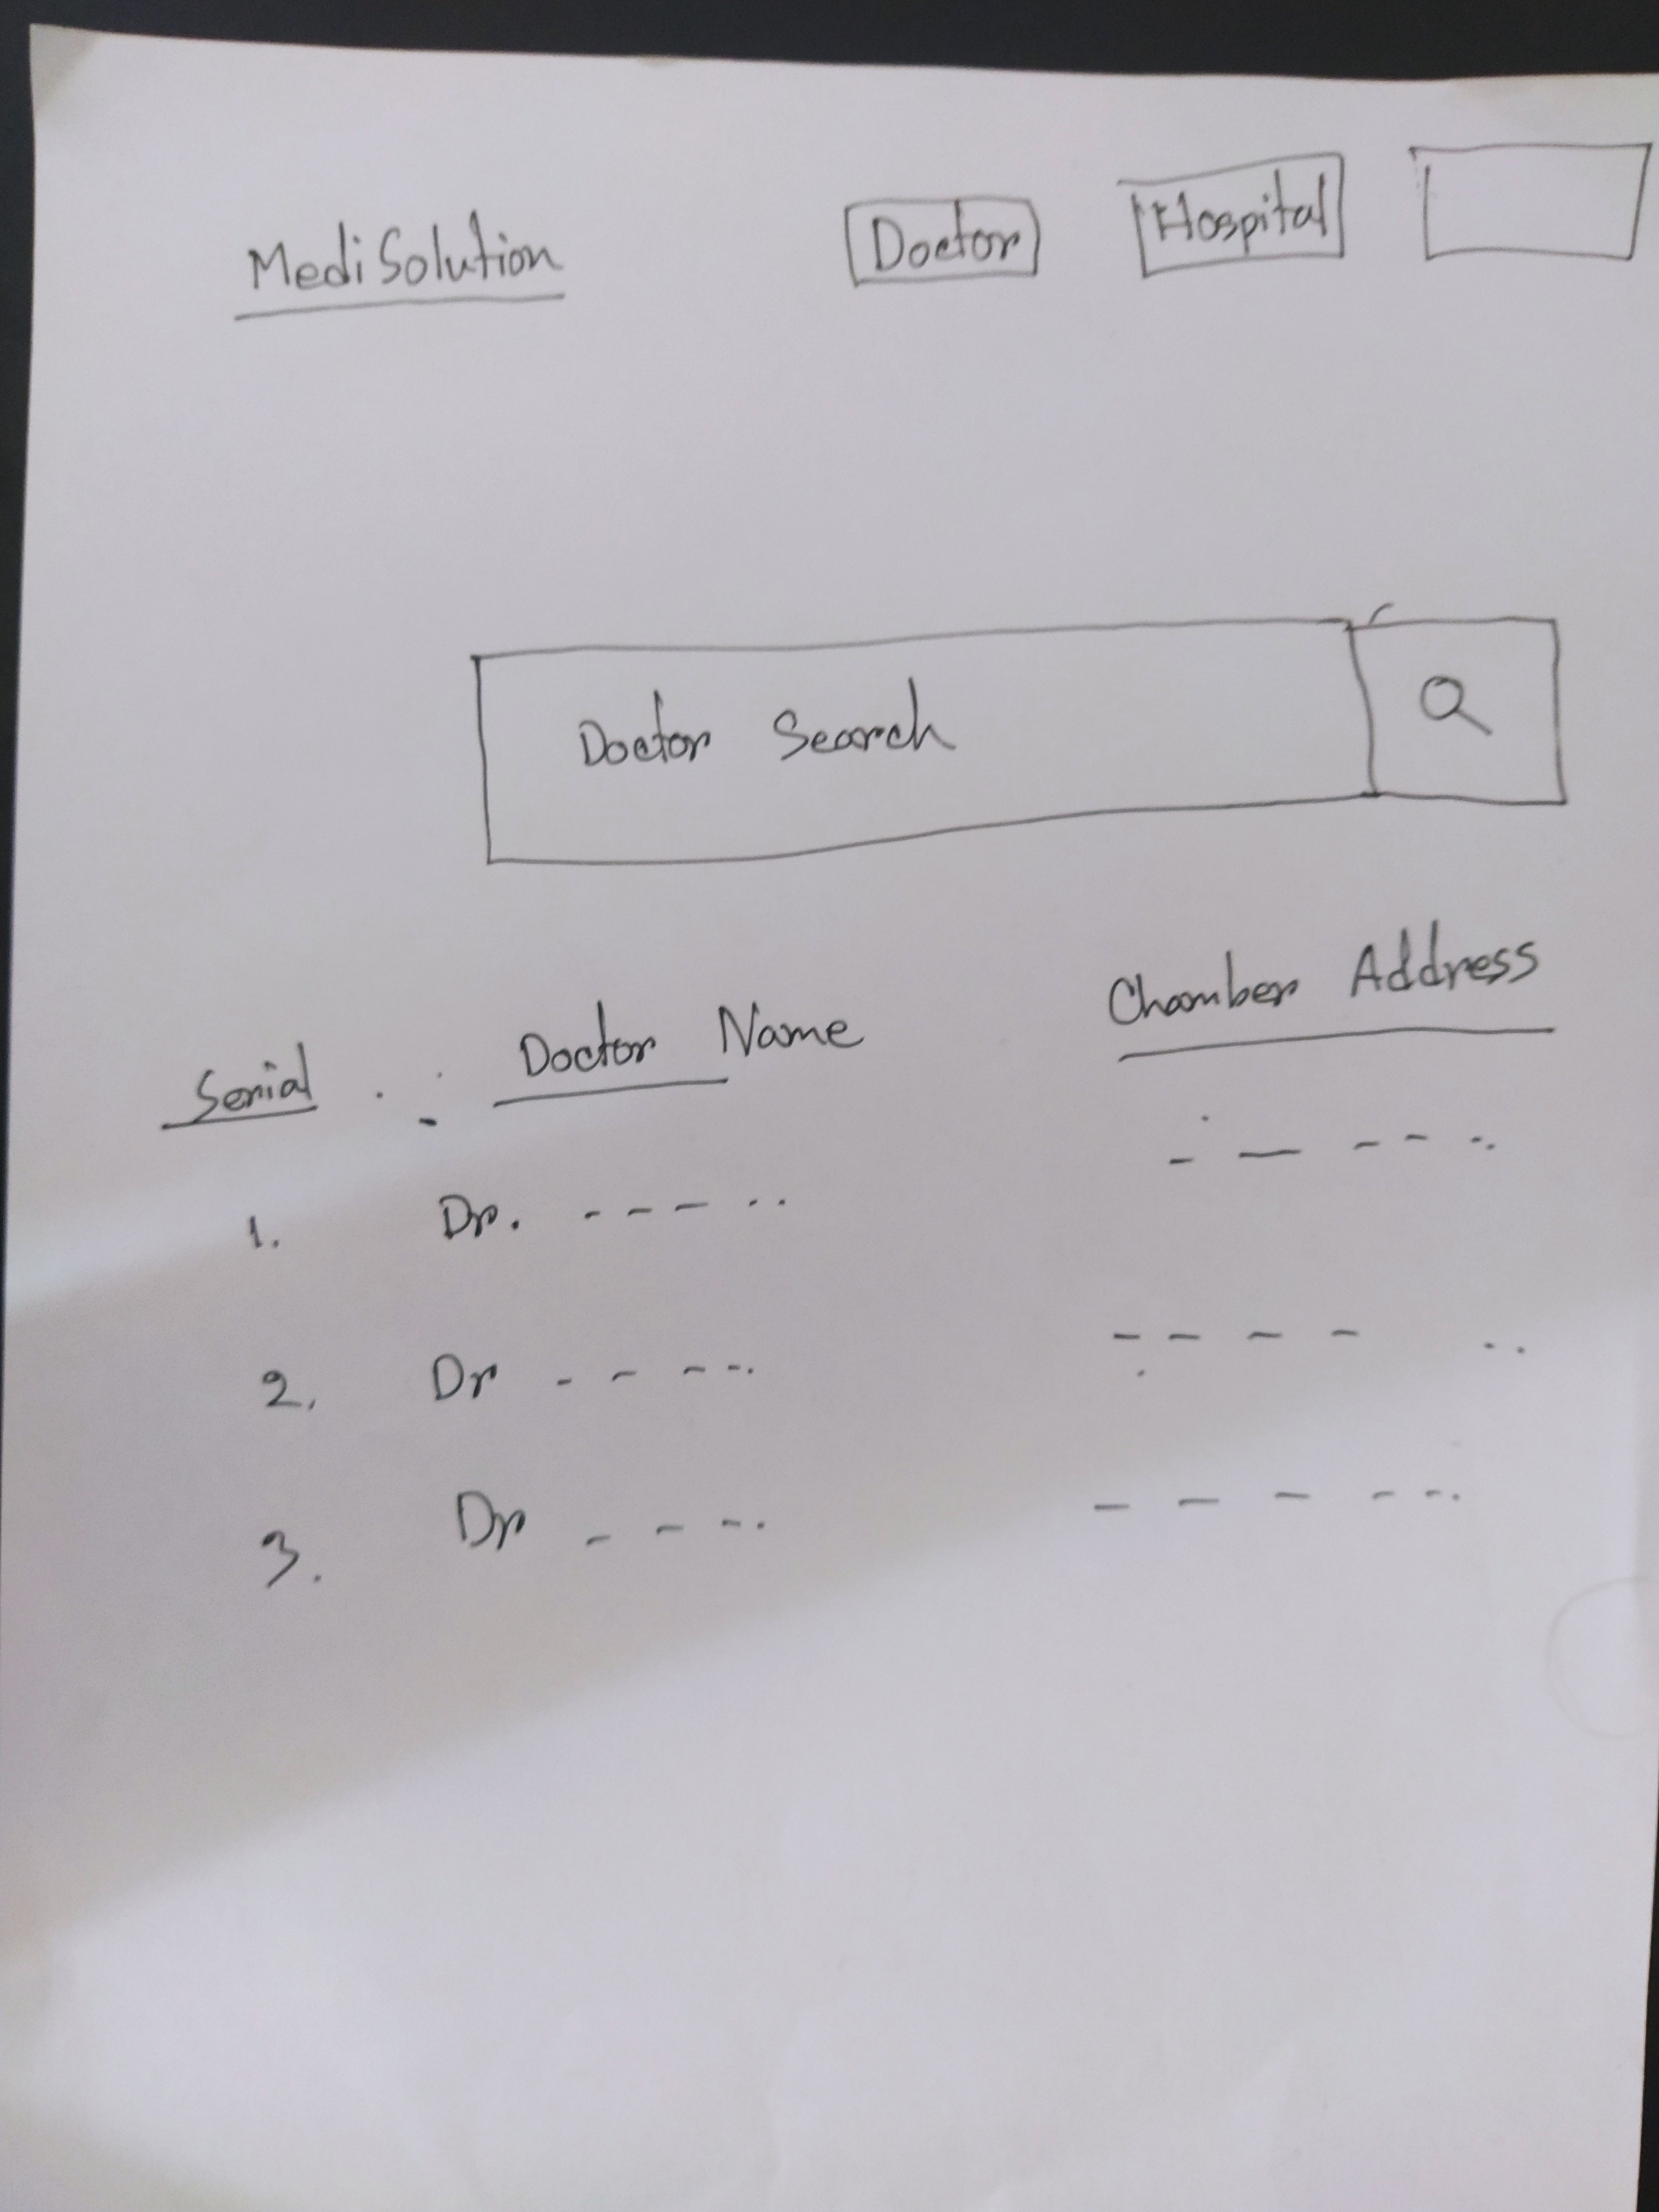 Medi Solution
Doctor
Hospital
Doctor Search
Serial Doctor Name Chamber Address
1. Dr. - - - - - - - - - -
2. Dr - - - - - - - - - -
3. Dr - - - - - - - - -